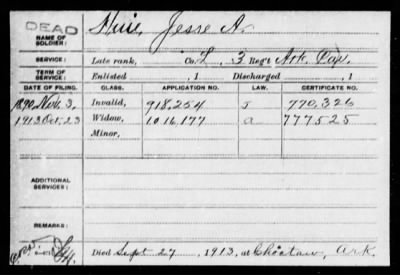 DEAD
NAME OF SOLDIER: Jesse A.
SERVICE: Late rank, Co. L, 3 Reg't Ark. Cav.
TERM OF SERVICE: Enlisted , 1 Discharged , 1
DATE OF FILING. CLASS. APPLICATION NO. LAW. CERTIFICATE NO.
1890, Nov. 3, Invalid, 918,254 J 770,326
1913 Oct. 23 Widow, 1016,177 a 777525
Minor,
ADDITIONAL SERVICES:
REMARKS:
Died Sept 27, 1913, at Choctaw, Ark.